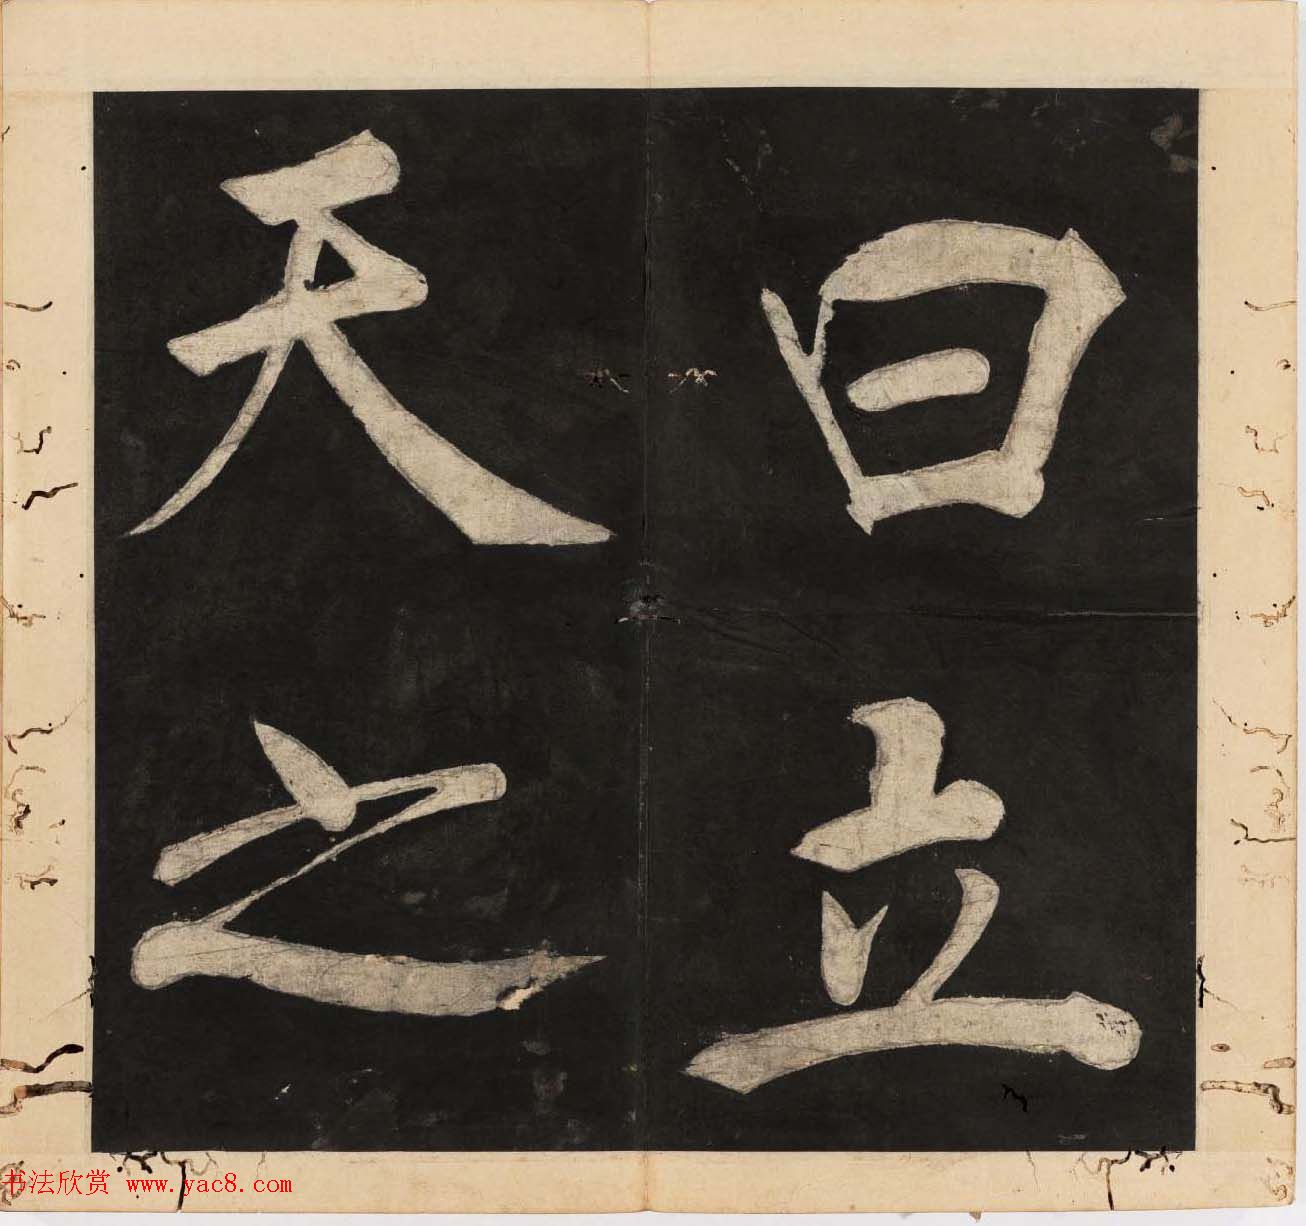 曰立
天之
书法欣赏 www.yac8.com